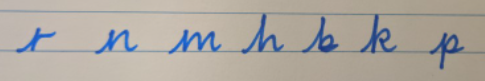 r n m h b k p